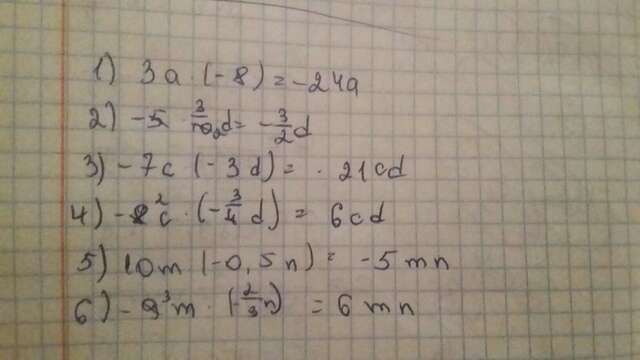 1) 3a · (-8) = -24a
2) -5 · 3/10 d = -3/2 d
3) -7c (-3d) = 21cd
4) -8² c · (-3/4 d) = 6cd
5) 10m (-0,5n) = -5mn
6) -9³ m · (-2/3 n) = 6mn